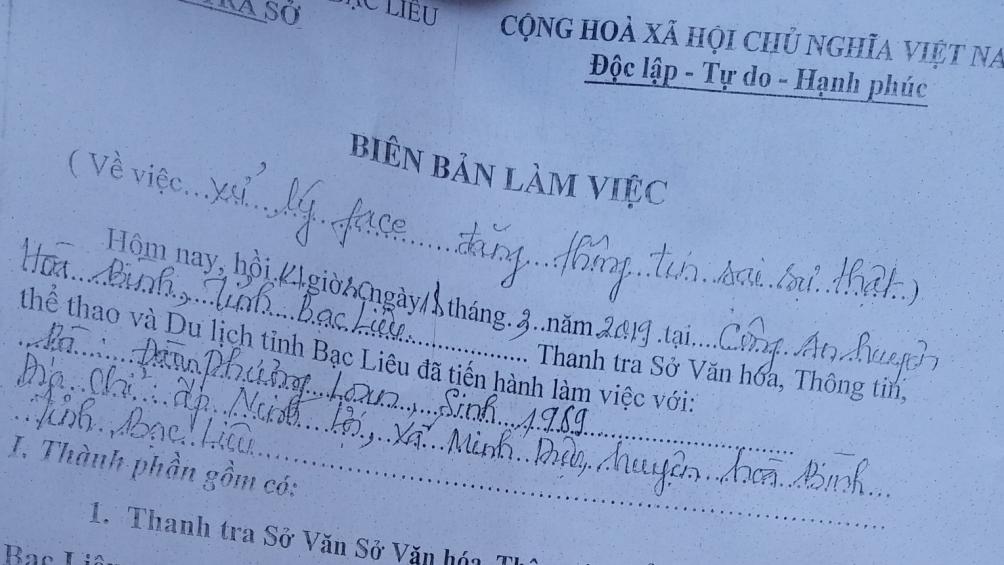 RA SỞ
BẠC LIÊU
CỘNG HOÀ XÃ HỘI CHỦ NGHĨA VIỆT NA
Độc lập - Tự do - Hạnh phúc
BIÊN BẢN LÀM VIỆC
( Về việc...xử lý face đăng thông tin sai sự thật.)
Hôm nay, hồi giờ ngày tháng.3..năm 2019 .tại....Công An huyện
Hòa Bình, tỉnh Bạc Liêu Thanh tra Sở Văn hóa, Thông tin,
thể thao và Du lịch tỉnh Bạc Liêu đã tiến hành làm việc với:
Bà : Phường Loan, Sinh 1989
Địa chỉ: ấp Ninh Lợi, xã Minh Diệu, huyện hòa Bình
tỉnh Bạc Liêu
I. Thành phần gồm có:
1. Thanh tra Sở Văn Sở Văn hóa
Bạc Liêu